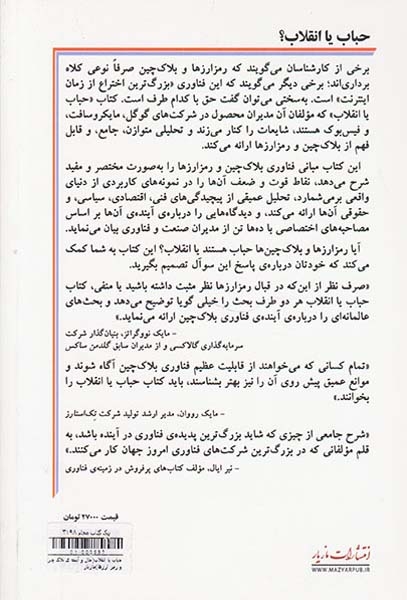 حباب یا انقلاب؟
برخی از کارشناسان می‌گویند که رمزارزها و بلاک‌چین صرفاً نوعی کلاه
برداری‌اند؛ برخی دیگر می‌گویند که این فناوری «بزرگ‌ترین اختراع از زمان
اینترنت» است. به‌سختی می‌توان گفت حق با کدام طرف است. کتاب «حباب
یا انقلاب» که مؤلفان آن مدیران محصول در شرکت‌های گوگل، مایکروسافت،
و فیس‌بوک هستند، شایعات را کنار می‌زند و تحلیلی متوازن، جامع، و قابل
فهم از بلاک‌چین و رمزارزها ارائه می‌کند.
این کتاب مبانی فناوری بلاک‌چین و رمزارزها را به‌صورت مختصر و مفید
شرح می‌دهد، نقاط قوت و ضعف آن‌ها را در نمونه‌های کاربردی از دنیای
واقعی برمی‌شمارد، تحلیل عمیقی از پیچیدگی‌های فنی، اقتصادی، سیاسی، و
حقوقی آن‌ها ارائه می‌کند، و دیدگاه‌هایی را درباره‌ی آینده‌ی آن‌ها بر اساس
مصاحبه‌های اختصاصی با ده‌ها تن از مدیران صنعت و فناوری بیان می‌نماید.
آیا رمزارزها و بلاک‌چین‌ها حباب هستند یا انقلاب؟ این کتاب به شما کمک
می‌کند که خودتان درباره‌ی پاسخ این سوآل تصمیم بگیرید.
«صرف نظر از این‌که در قبال رمزارزها نظر مثبت داشته باشید یا منفی، کتاب
حباب یا انقلاب هر دو طرف بحث را خیلی گویا توضیح می‌دهد و بحث‌های
عالمانه‌ای را درباره‌ی آینده‌ی فناوری بلاک‌چین ارائه می‌نماید.»
– مایک نووگراتز، بنیان‌گذار شرکت
سرمایه‌گذاری گالاکسی و از مدیران سابق گلدمن ساکس
«تمام کسانی که می‌خواهند از قابلیت عظیم فناوری بلاک‌چین آگاه شوند و
موانع عمیق پیش روی آن را نیز بهتر بشناسند، باید کتاب حباب یا انقلاب را
بخوانند.»
– مایک رووان، مدیر ارشد تولید شرکت تِک‌استارز
«شرح جامعی از چیزی که شاید بزرگ‌ترین پدیده‌ی فناوری در آینده باشد، به
قلم مؤلفانی که در بزرگ‌ترین شرکت‌های فناوری امروز جهان کار می‌کنند.»
– نیر ایال، مؤلف کتاب‌های پرفروش در زمینه‌ی فناوری
قیمت ۲۷۰۰۰ تومان
انتشارات مازیار
WWW.MAZYARPUB.IR